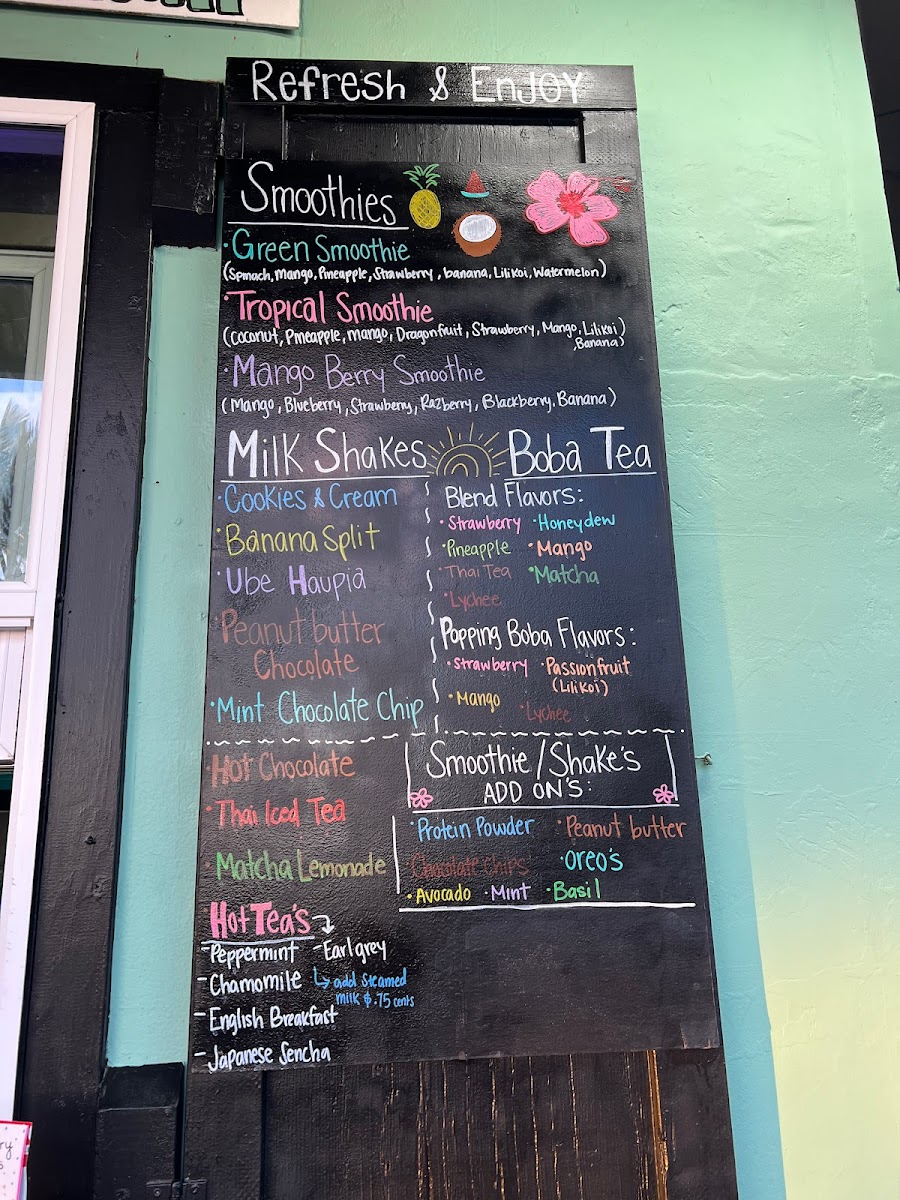 Refresh & Enjoy
Smoothies
·Green Smoothie
(Spinach, Mango, Pineapple, Strawberry, banana, Lilikoi, Watermelon)
·Tropical Smoothie
(Coconut, Pineapple, mango, Dragonfruit, Strawberry, Mango, Lilikoi
,Banana)
·Mango Berry Smoothie
(Mango, Blueberry, Strawberry, Razberry, Blackberry, Banana)
Milk Shakes
·Cookies & Cream
·Banana Split
·Ube Haupia
·Peanut butter
Chocolate
·Mint Chocolate Chip
Boba Tea
Blend Flavors:
·Strawberry ·Honeydew
·Pineapple ·Mango
·Thai Tea ·Matcha
·Lychee
Popping Boba Flavors:
·Strawberry ·Passionfruit
(Lilikoi)
·Mango ·Lychee
·Hot Chocolate
·Thai Iced Tea
·Matcha Lemonade
Smoothie/Shake's
ADD ON'S:
·Protein Powder ·Peanut butter
·Chocolate Chips ·Oreo's
·Avocado ·Mint ·Basil
Hot Tea's
-Peppermint -Earl grey
-Chamomile
add steamed
milk $.75 cents
-English Breakfast
-Japanese Sencha